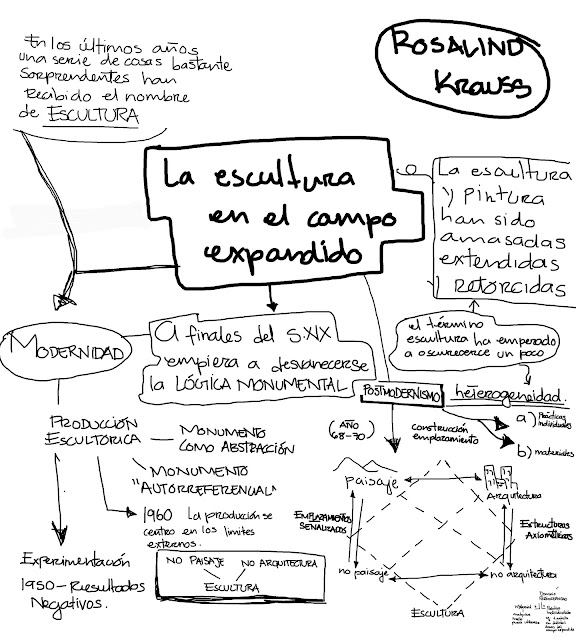 En los últimos años
una serie de cosas bastante
sorprendentes han
recibido el nombre
de ESCULTURA
ROSALIND
KRAUSS
La escultura
en el campo
expandido
La escultura
y pintura
han sido
amasadas
extendidas
y retorcidas
el término
escultura ha empezado
a oscurecerse un poco
MODERNIDAD
A finales del S.XIX
empieza a desvanecerse
la LÓGICA MONUMENTAL
POSTMODERNISMO
heterogeneidad.
a) Prácticas
individuales
b) materiales
PRODUCCIÓN
ESCULTÓRICA
MONUMENTO
COMO ABSTRACCIÓN
MONUMENTO
"AUTORREFERENCIAL"
1960 La producción se
centro en los limites
externos.
NO PAISAJE NO ARQUITECTURA
ESCULTURA
Experimentación
1950 - Resultados
Negativos.
(AÑO
68-70)
construcción
emplazamiento
paisaje
Arquitectura
EMPLAZAMIENTOS
SEÑALIZADOS
Estructuras
Axiomáticas
no paisaje
no arquitectura
ESCULTURA